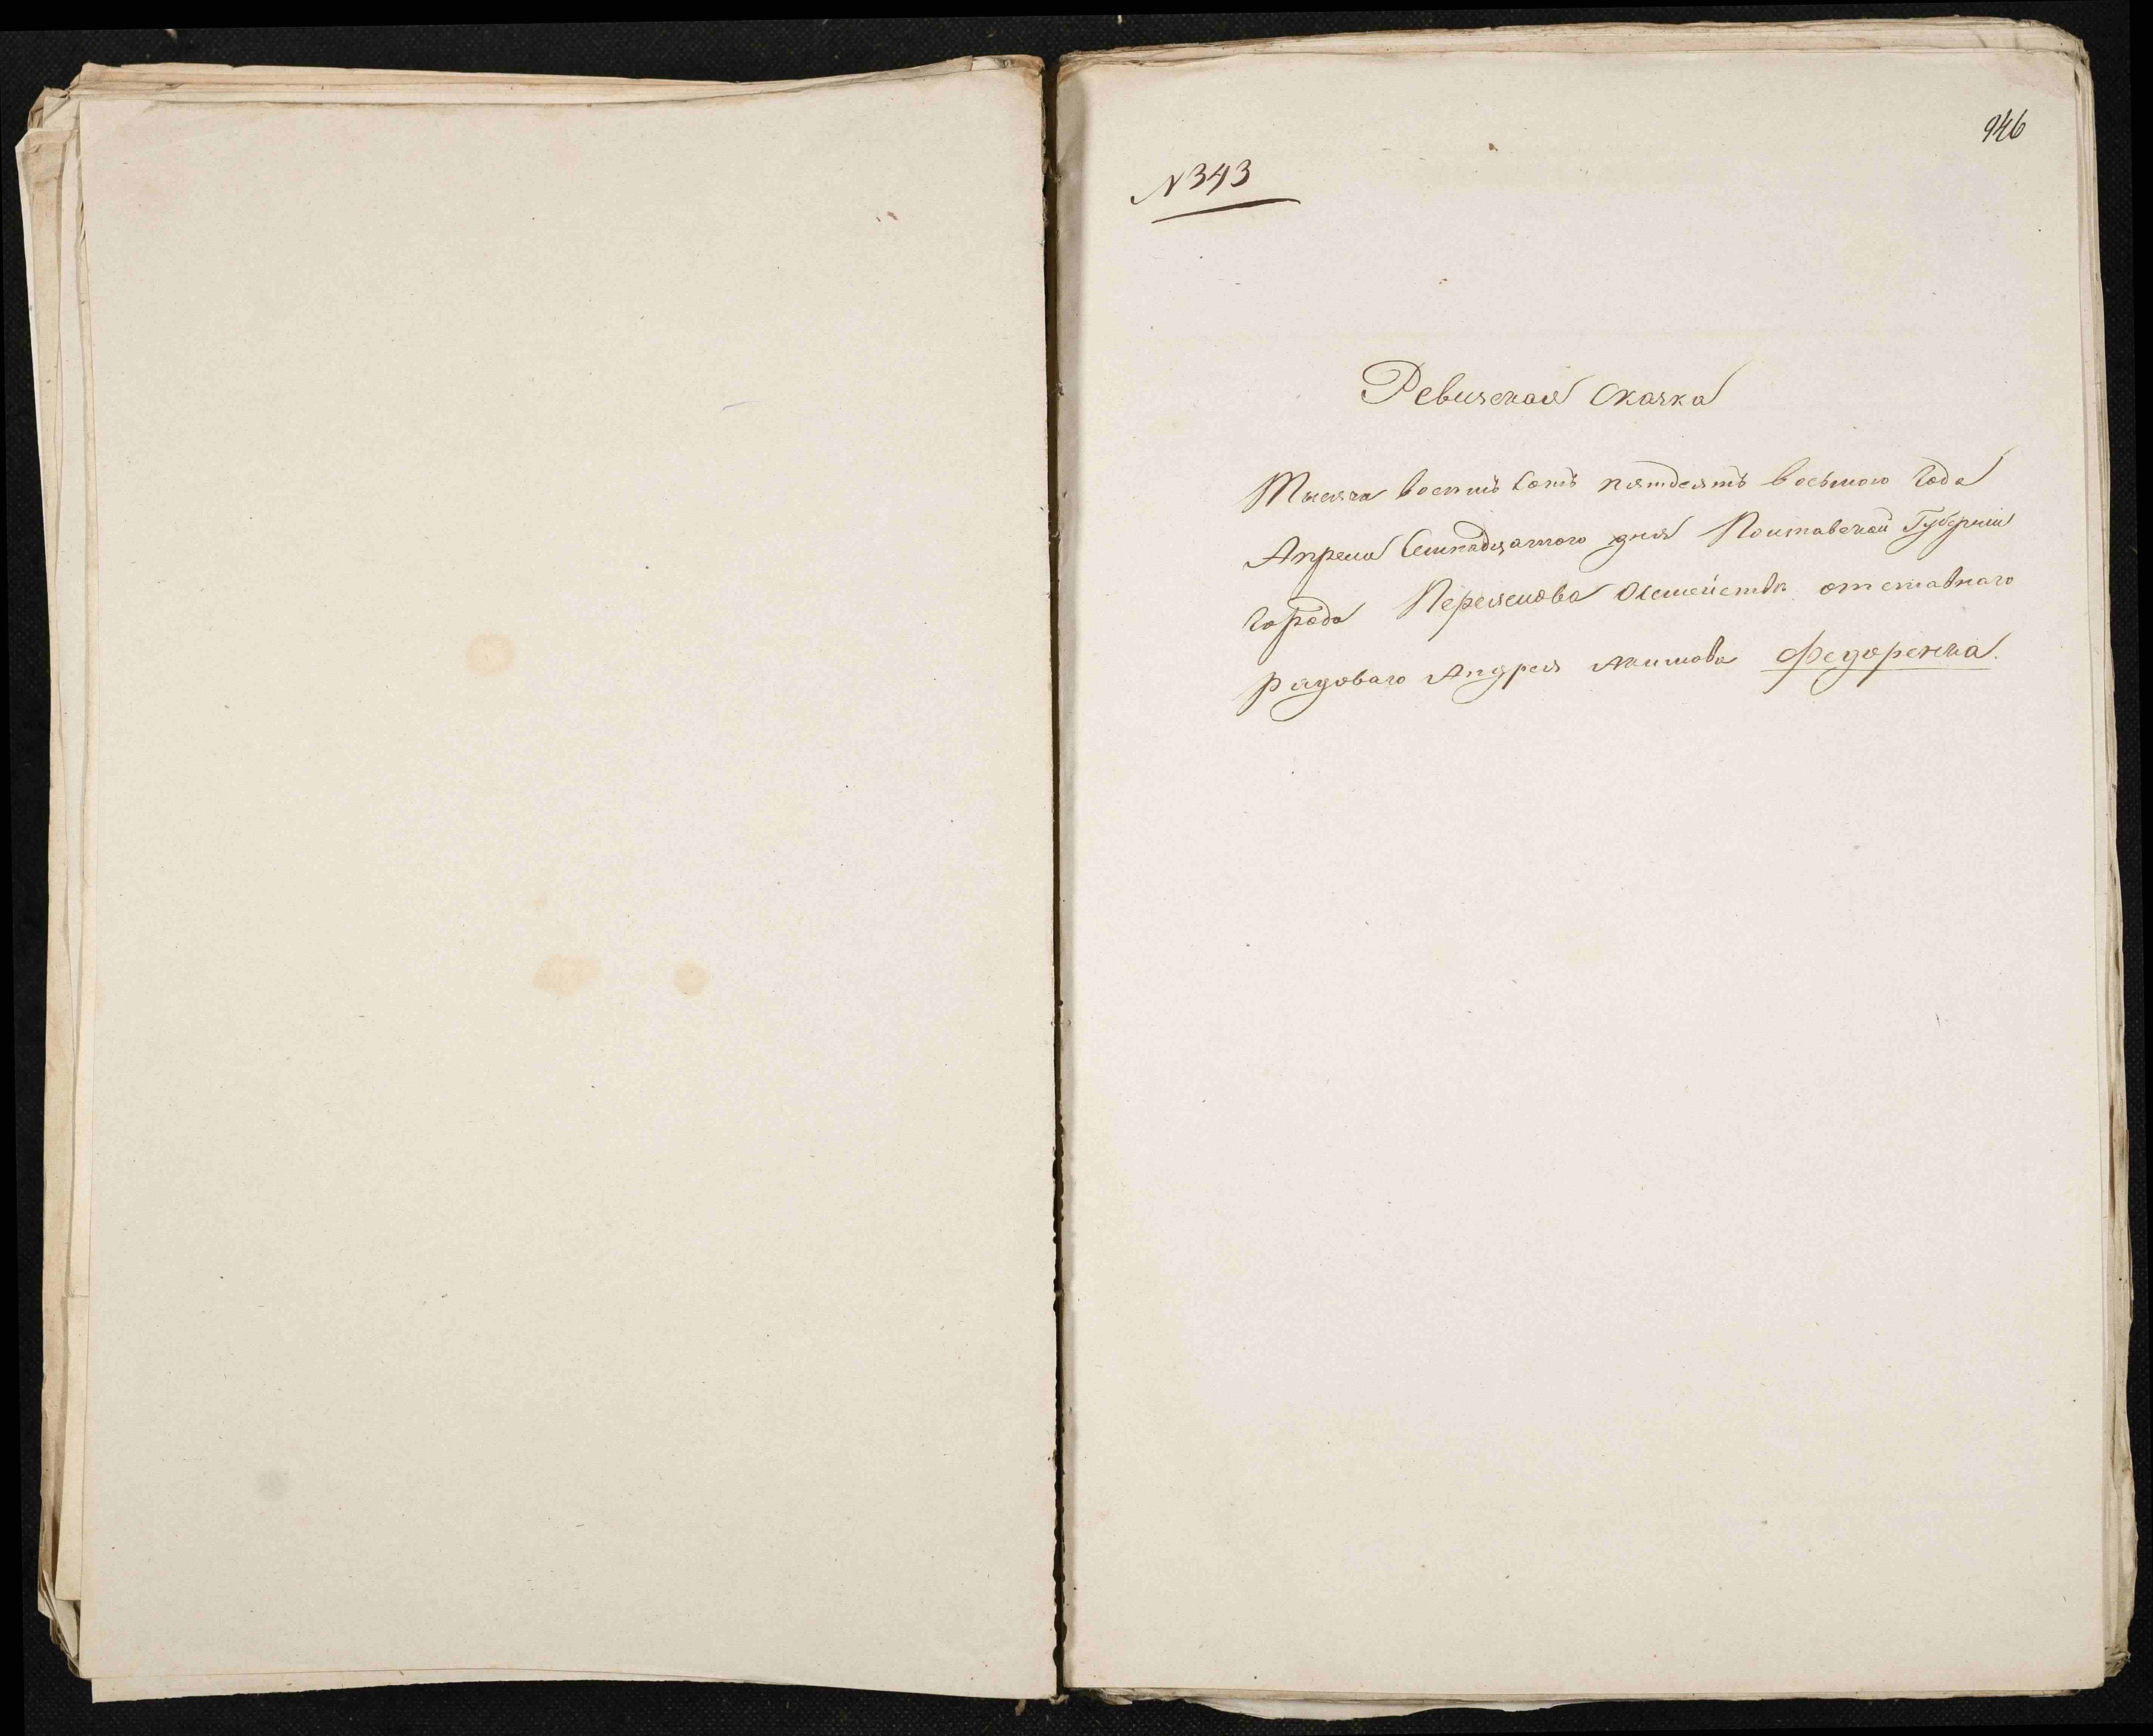 946
N 343
Ревизская Сказка
Тысяча восемь сотъ пятдесятъ восьмого Года
Апреля Семнадцатого дня Полтавской Губернии
Города Переяслова Осемействе отставнаго
рядоваго Андрея Акимова Федоренка.